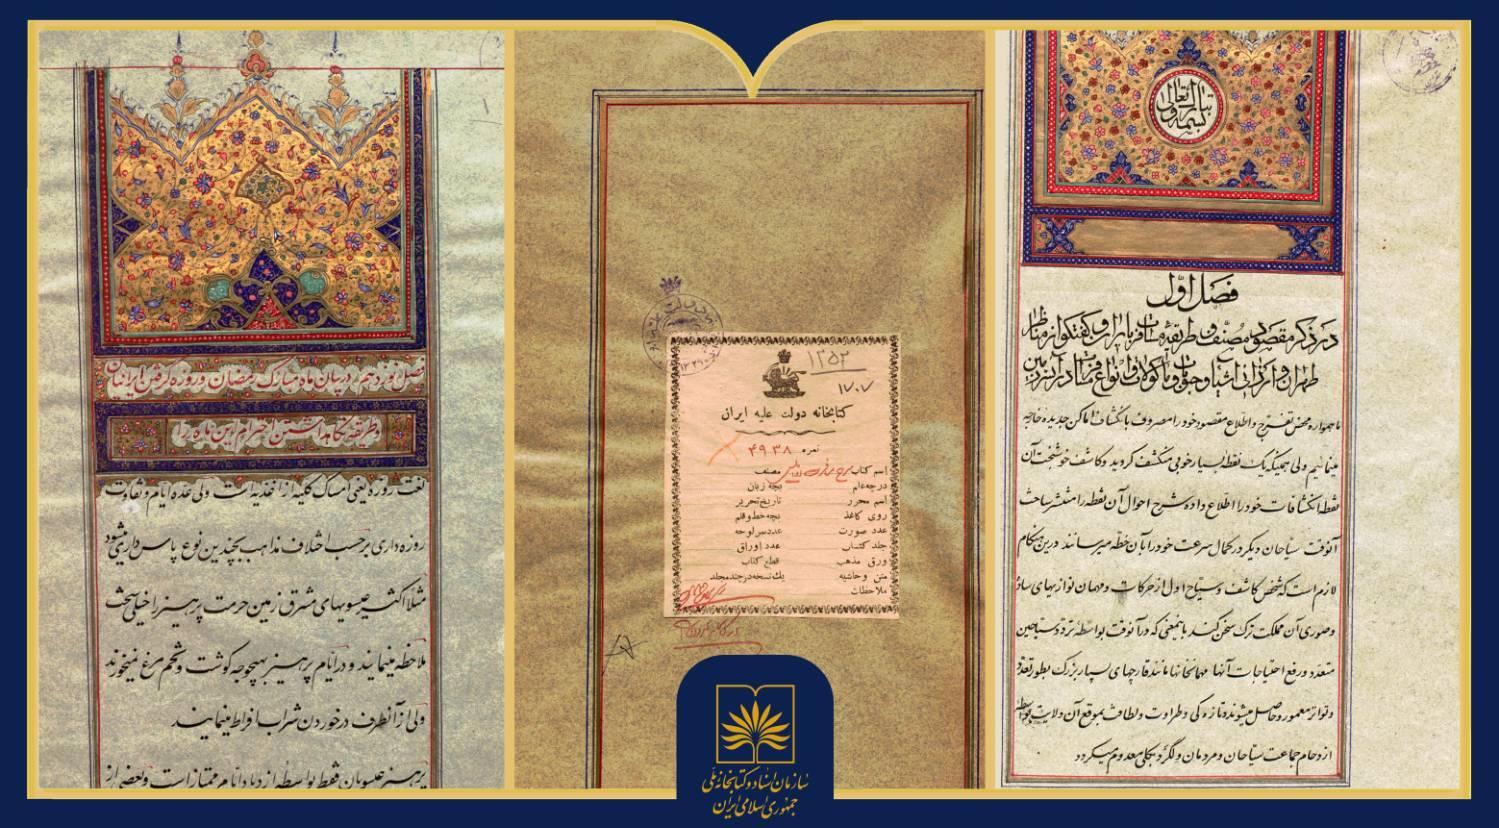 بسمه تبارک و تعالی
فصل اوّل
در ذکر مقصود مصنف و طریقهٔ مسافرت با ایران و گفتگو از مناظر
طهران و
ما همواره محض تفرج و اطلاع مقصود خود را مصروف بانکشاف اماکن جدیده خاصه
مینمائیم ولی همینکه یک نقطه بسیار خوبی منکشف گردید و کاشف خوشبخت آن
نقطه انکشافات خود را اطلاع داده شرح احوال آن نقطه را منتشر ساخت
آنوقت سیّاحان دیگر در کمال سرعت خود را بآن خطه میرسانند درین هنگام
لازم است که شخص کاشف و سیّاح اول از حرکات و مهمان نوازیهای ساده
وصوری آن مملکت ترک سخن کند باینمعنی که در آنوقت بواسطه تردد سیّاحین
متعدد و رفع احتیاجات آنها مهمانخانها مانند قارچهای بسیار بزرگ بطور تعدّد
و تواتر معمور و حاصل میشوند و تازه کی و طراوت و لطافت بموقع آن ولایت بواسطه
ازدحام جماعت سیّاحان و مردمان ولگرد بکلی معدوم میگردد
۱۲۵۲
۱۷۰۷
کتابخانه دولت علیه ایران
نمره ۴۹۳۸
اسم کتاب مصنف
درچه علم بچه زبان
اسم محرر تاریخ تحریر
روی کاغذ بچه خط و قلم
عدد صورت عدد سرلوحه
جلد کتاب عدد اوراق
ورق مذهب قطع کتاب
متن و حاشیه یک نسخه در چند مجلد
ملاحظات
فصل نوزدهم در بیان ماه مبارک رمضان و روزه گرفتن ایرانیان
و طریقه نگاهداشتن احترام این ماه را
لغت روزه یعنی امساک کلیه از اغذیه است ولی عده ایام و تفاوت
روزه داری برحسب اختلاف مذاهب بچندین نوع پاس داری میشود
مثلا اکثر عیسویهای مشرق زمین حرمت پرهیز را خیلی سخت
ملاحظه مینمایند و در ایام پرهیز بهیچوجه گوشت و شحم مرغ نمیخورند
ولی از آنطرف در خوردن شراب افراط مینمایند
پرهیز عیسویان فقط بواسطه ازدیاد ایام ممتاز است و بعضی از
سازمان اسناد و کتابخانه ملی
جمهوری اسلامی ایران